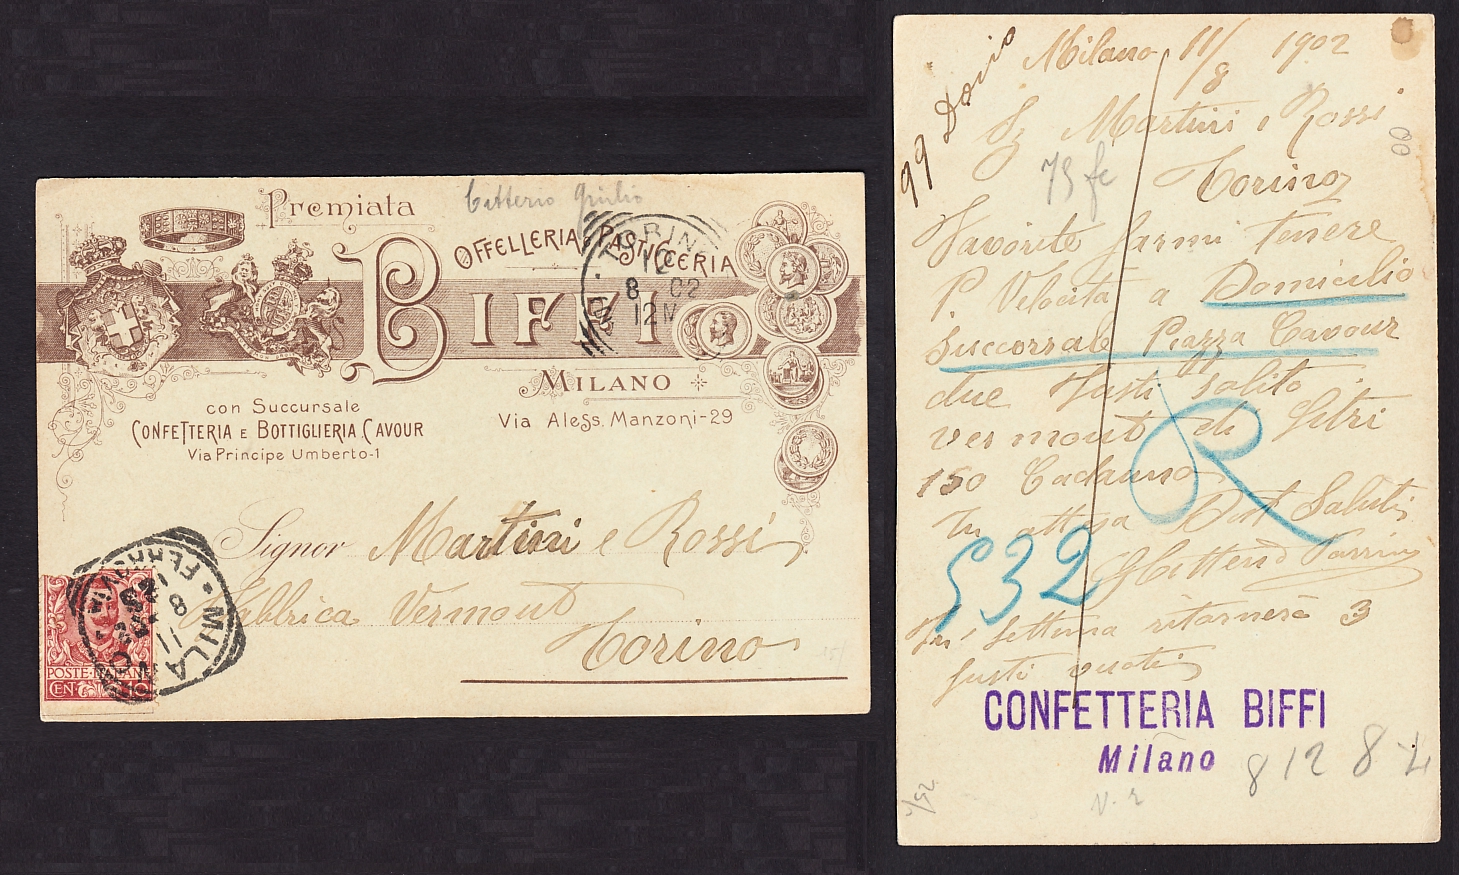 Premiata
OFFELLERIA PASTICCERIA
BIFFI
MILANO
Via Aless. Manzoni-29
con Succursale
CONFETTERIA E BOTTIGLIERIA CAVOUR
Via Principe Umberto-1
TORINO
8 02
12M
Signor Martini e Rossi
Fabbrica Vermout
Torino
MILANO
FERROVIA
11 8
POSTE ITALIANE
CEN. 10
Milano 11/8 1902
Martini e Rossi
Torino
Favorite farmi tenere
P Velocita a Domicilio
Succorsale Piazza Cavour
due fusti solito
vermout di Litri
150 Cadauno
In attesa Saluti
532
R
settima ritornerà 3
fusti vuoti
CONFETTERIA BIFFI
Milano
8128